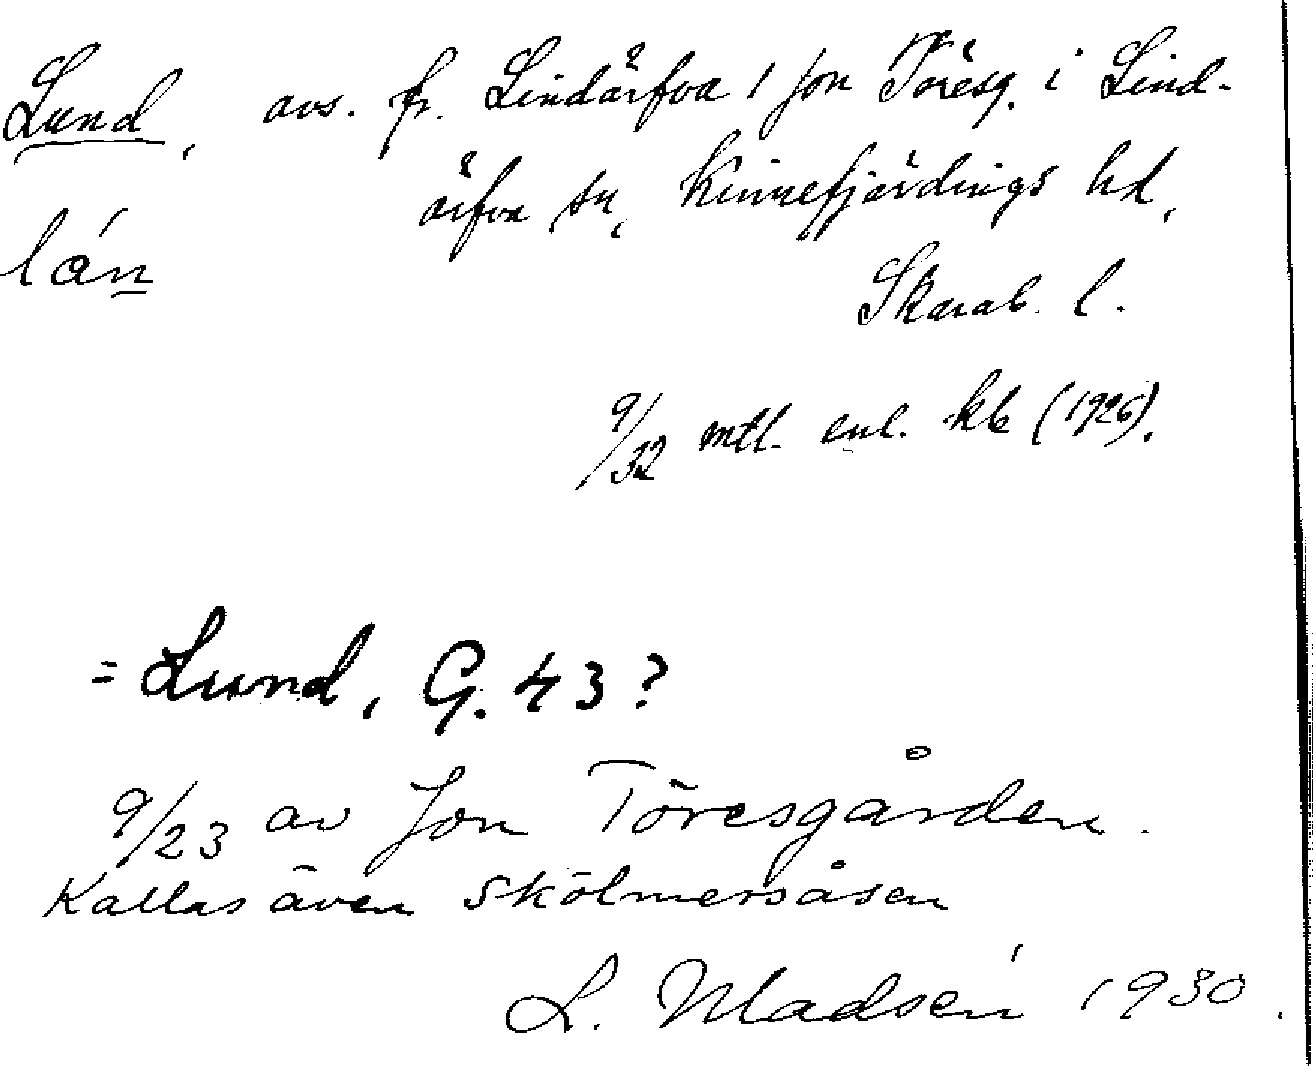 Lund, avs. fr. Lindärfva 1 Jon Töresg. i Lind-
ärfva sn, Kinnefjärdings hd,
lán
Skarab. l.
9/32 mtl. enl. kb (1926).
= Lund, G. 43?
9/23 av Jon Töresgården.
Kallas även Skölmersåsen
L. Madsén 1930.